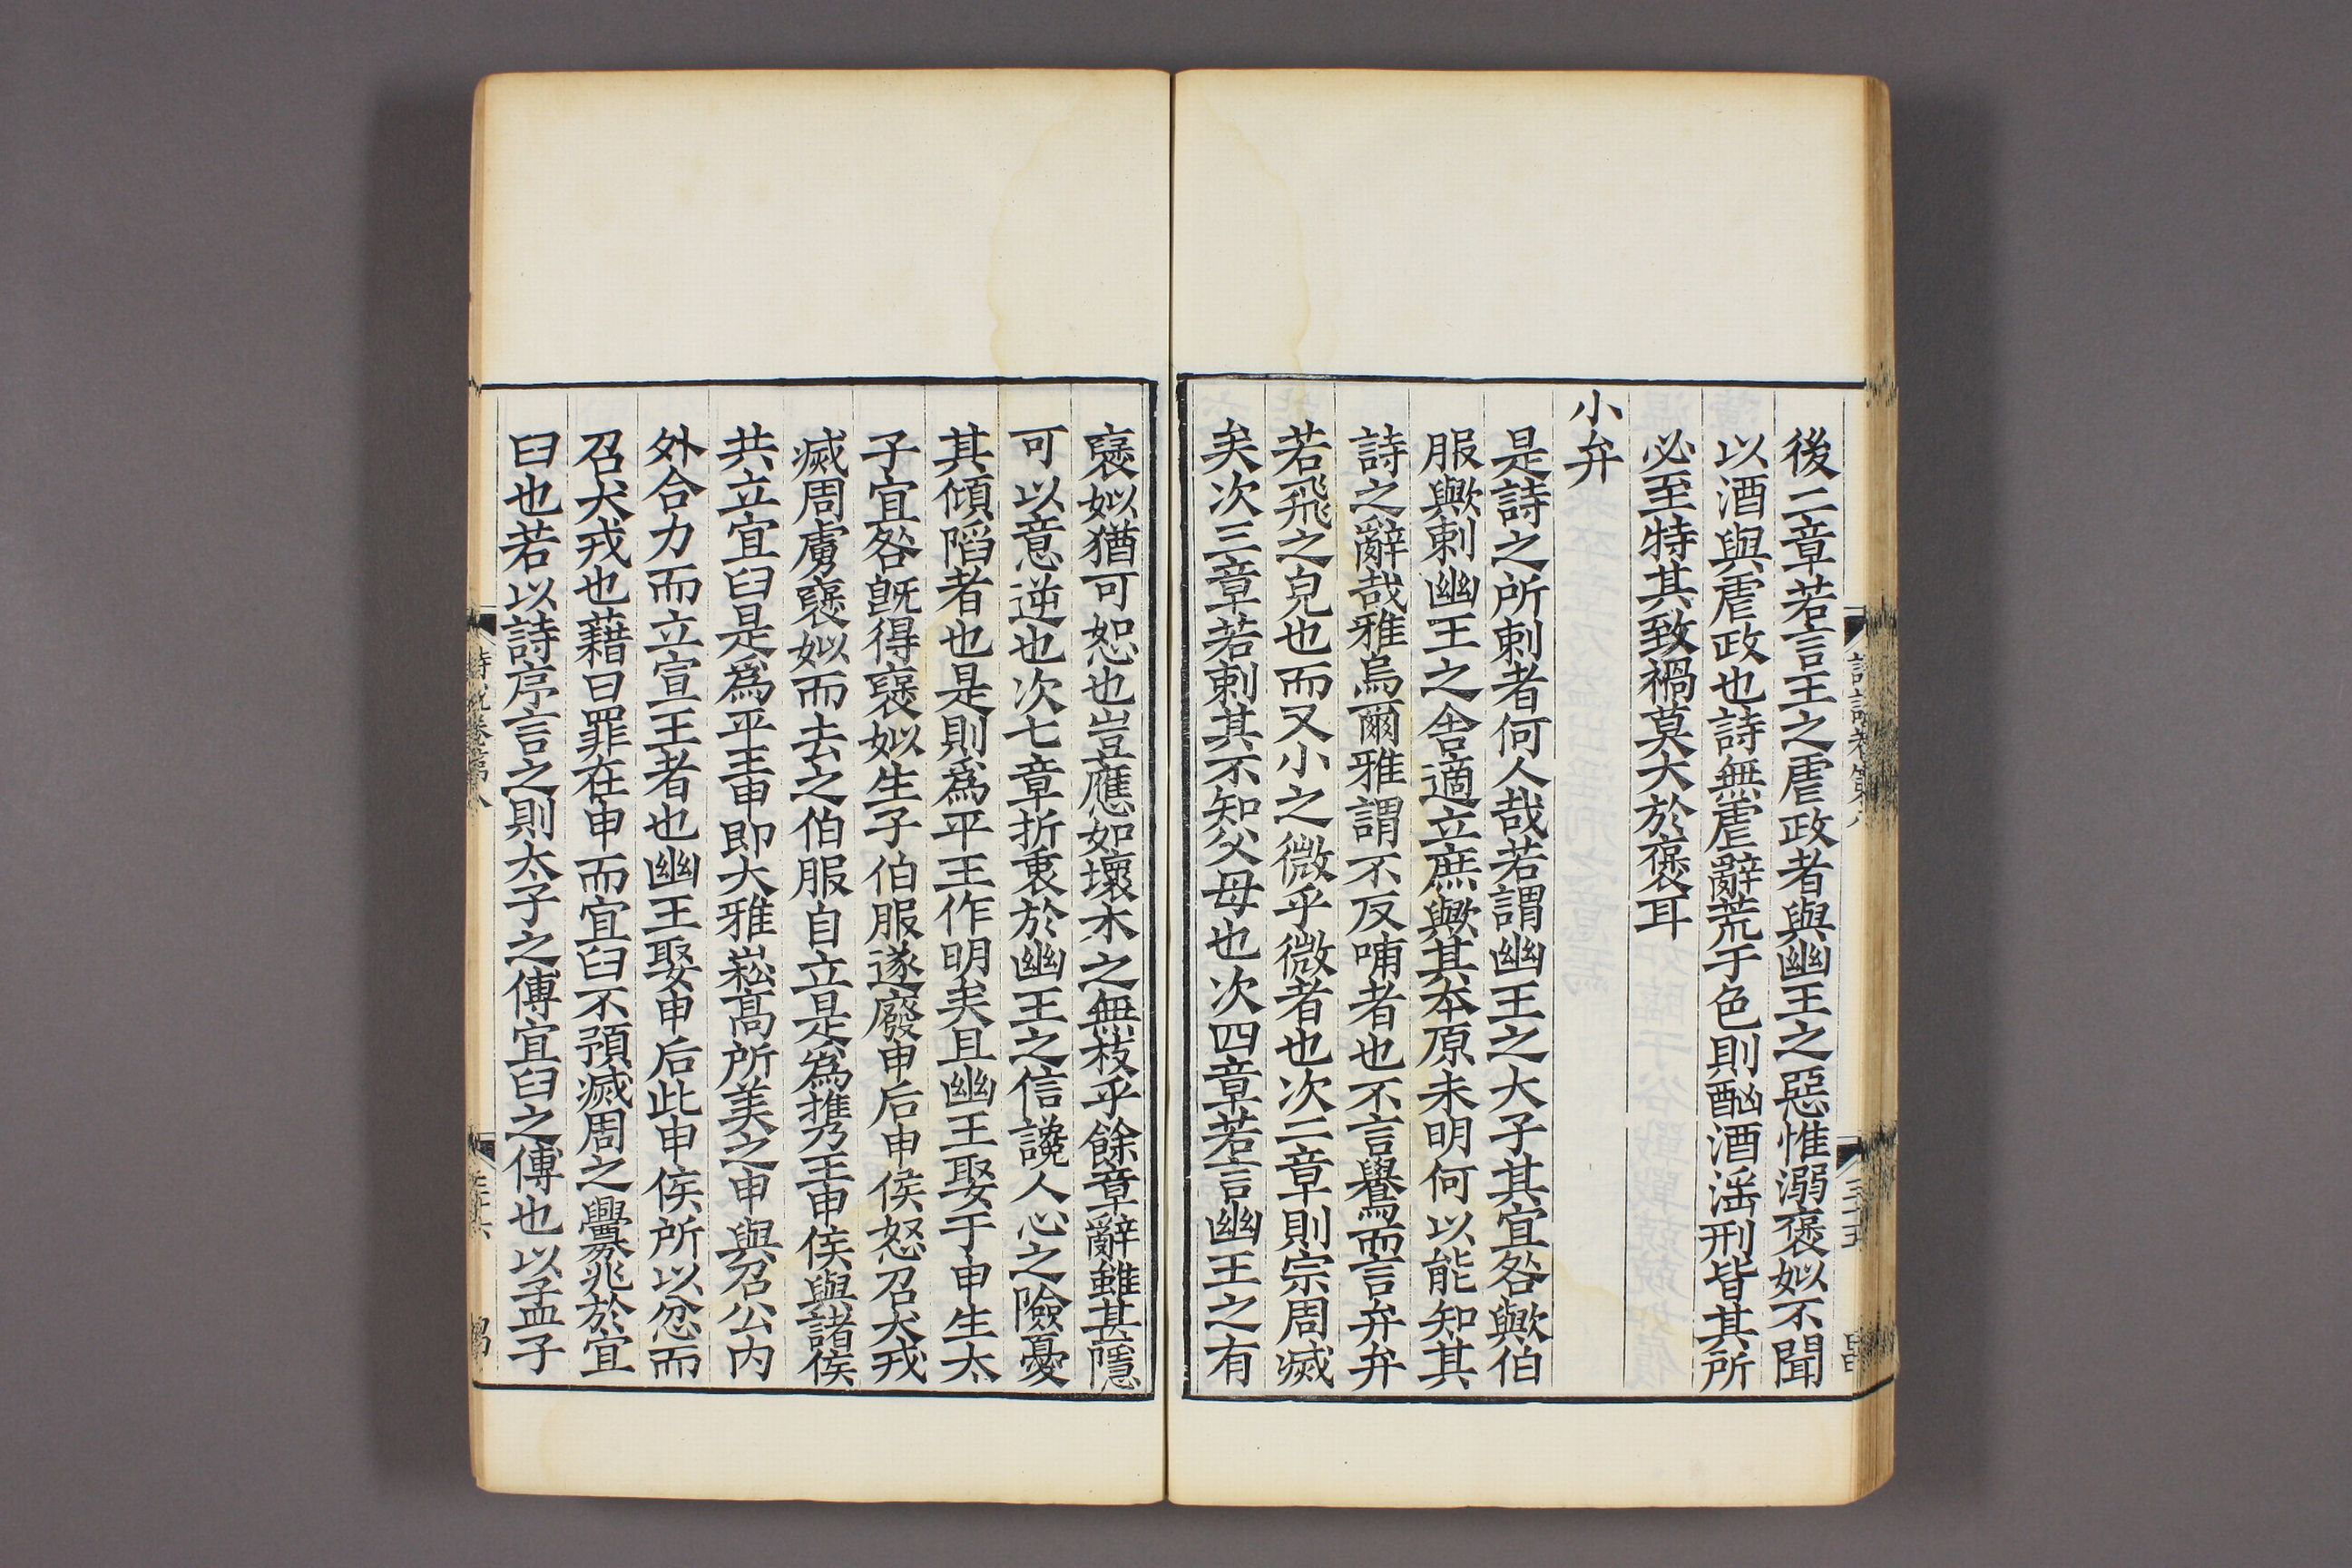 後二章若言王之虐政者與幽王之惡惟溺褒姒不聞
以酒與虐政也詩無虐辭荒于色則酗酒淫刑皆其所
必至特其致禍莫大於褒耳
小弁
是詩之所刺者何人哉若謂幽王之大子其宜咎歟伯
服歟刺幽王之舍適立庶歟其本原未明何以能知其
詩之辭哉雅烏爾雅謂不反哺者也不言鸒而言弁弁
若飛之皃也而又小之微乎微者也次二章則宗周滅
矣次三章若刺其不知父母也次四章若言幽王之有
褒姒猶可恕也豈應如壞木之無枝乎餘章辭雖甚隱
可以意逆也次七章折衷於幽王之信讒人心之險憂
其傾陷者也是則爲平王作明矣且幽王娶于申生太
子宜咎旣得褒姒生子伯服遂廢申后申侯怒召犬戎
滅周虜褒姒而去之伯服自立是爲攜王申侯與諸侯
共立宜臼是爲平王申即大雅崧高所美之申與召公内
外合力而立宣王者也幽王娶申后此申侯所以忿而
召犬戎也藉曰罪在申而宜臼不預滅周之釁兆於宜
臼也若以詩序言之則太子之傅宜臼之傅也以孟子
詩說卷第八
三十五